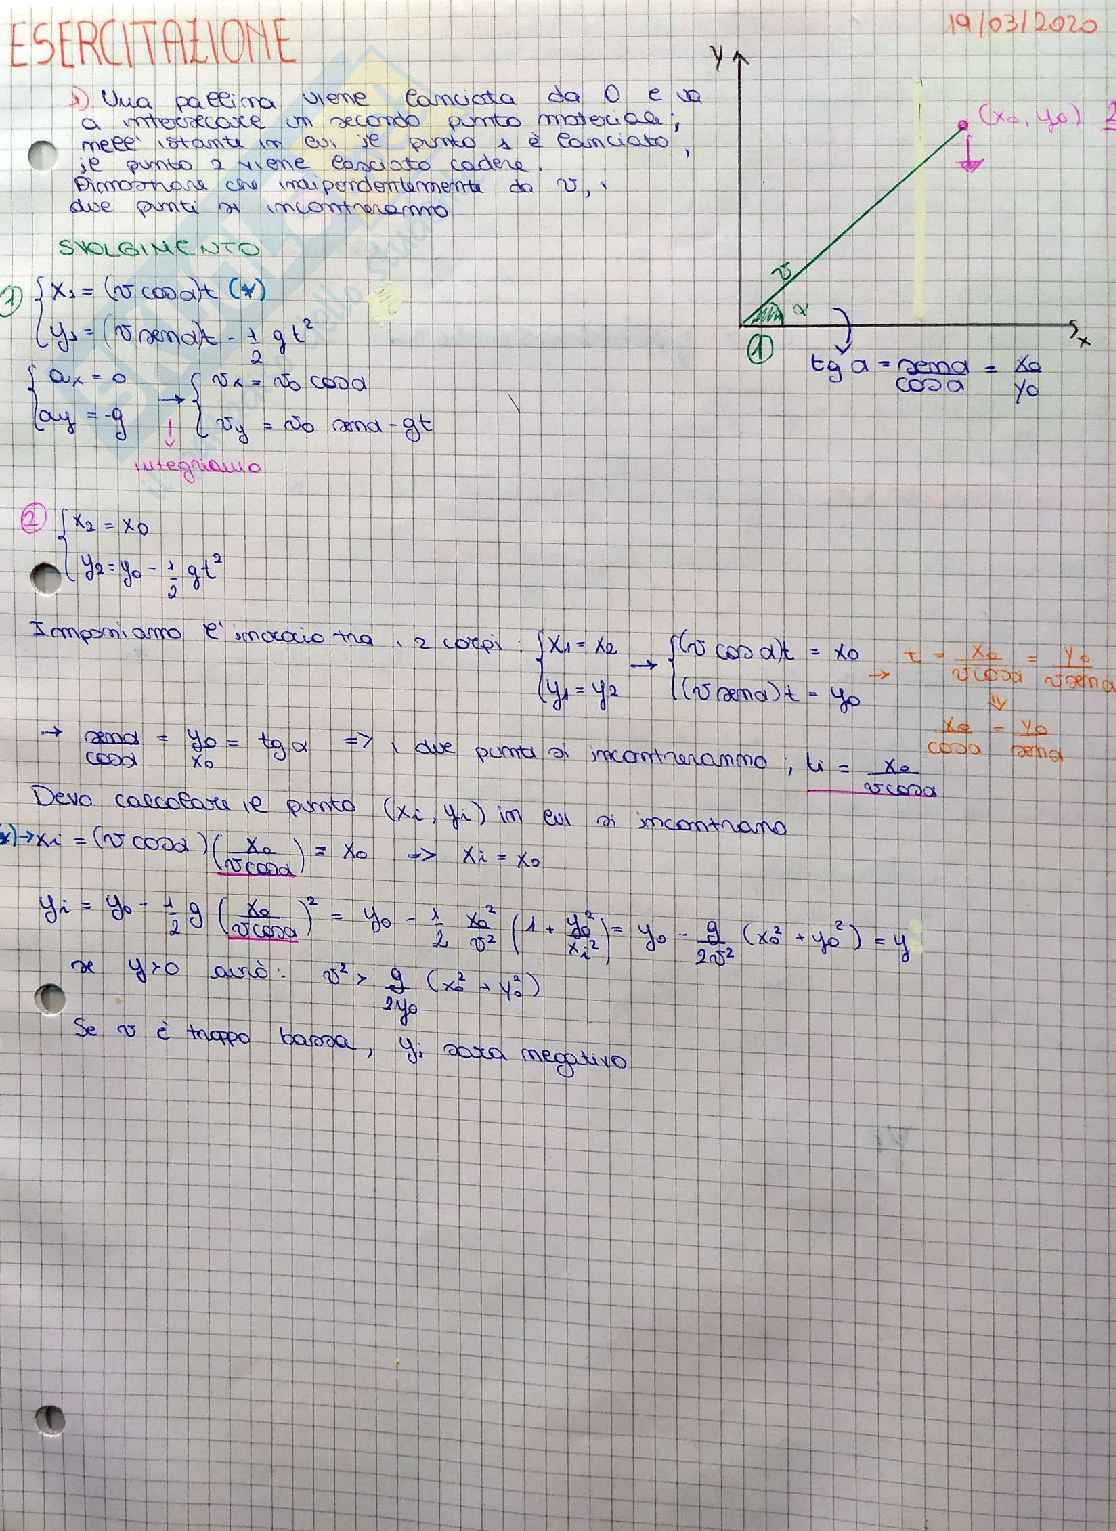 ESERCITAZIONE
19/03/2020
1) Una pallina viene lanciata da O e va
a intersecare un secondo punto materiale;
nell'istante in cui il punto 1 è lanciato,
il punto 2 viene lasciato cadere.
Dimostrare che indipendentemente da v, i
due punti si incontreranno
y
(x₀, y₀) 2
v
α
x
①
tg α = senα/cosα = x₀/y₀
SVOLGIMENTO
① { x₁ = (v cosα)t (*)
{ y₁ = (v senα)t - 1/2 gt²
{ ax = 0 → { vx = v₀ cosα
{ ay = -g { vy = v₀ senα - gt
integriamo
② { x₂ = x₀
{ y₂ = y₀ - 1/2 gt²
Imponiamo l'impatto tra i 2 corpi: { x₁ = x₂ → { (v cosα)t = x₀ → t = x₀/(v cosα) = y₀/(v senα)
{ y₁ = y₂ { (v senα)t = y₀
⇒ x₀/cosα = y₀/senα
→ senα/cosα = y₀/x₀ = tg α => i due punti si incontreranno, ti = x₀/(v cosα)
Devo calcolare il punto (xi, yi) in cui si incontrano
(*) → xi = (v cosα)(x₀/(v cosα)) = x₀ → xi = x₀
yi = y₀ - 1/2 g (x₀/(v cosα))² = y₀ - 1/2 x₀²/v² (1 + y₀²/xi²) = y₀ - g/2v² (x₀² + y₀²) = y
se y>0 avrò: v² > g/2y₀ (x₀² + y₀²)
Se v è troppo bassa, yi sarà negativo